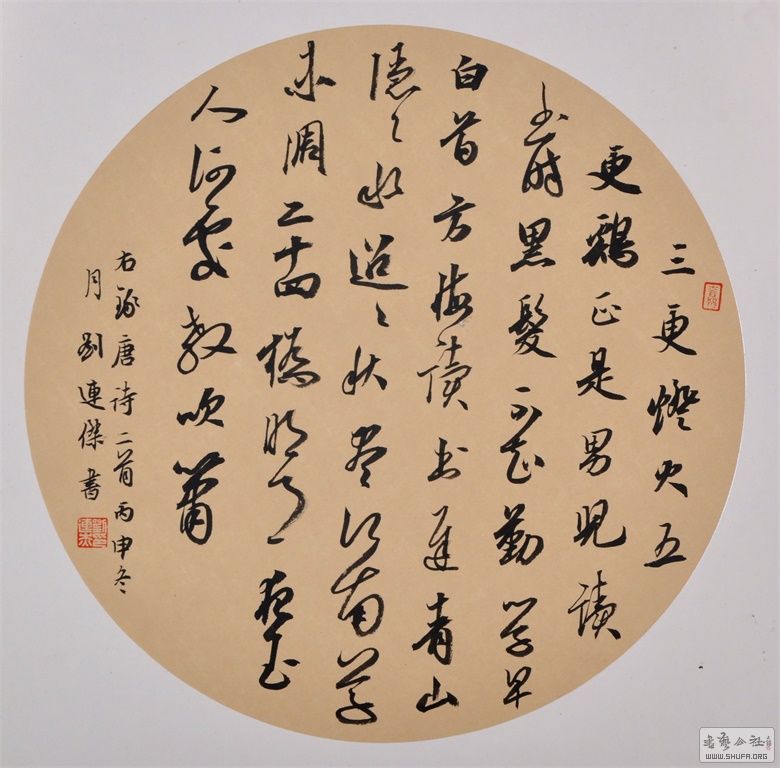 三更燈火五
更鷄正是男兒讀
书時黑髮不知勤學早
白首方悔讀书遲青山
隱〻水迢〻秋盡江南草
未凋二十四橋明月夜玉
人何處教吹簫
右錄唐詩二首丙申冬
月劉連傑書
书艺公社
WWW.SHUFA.ORG